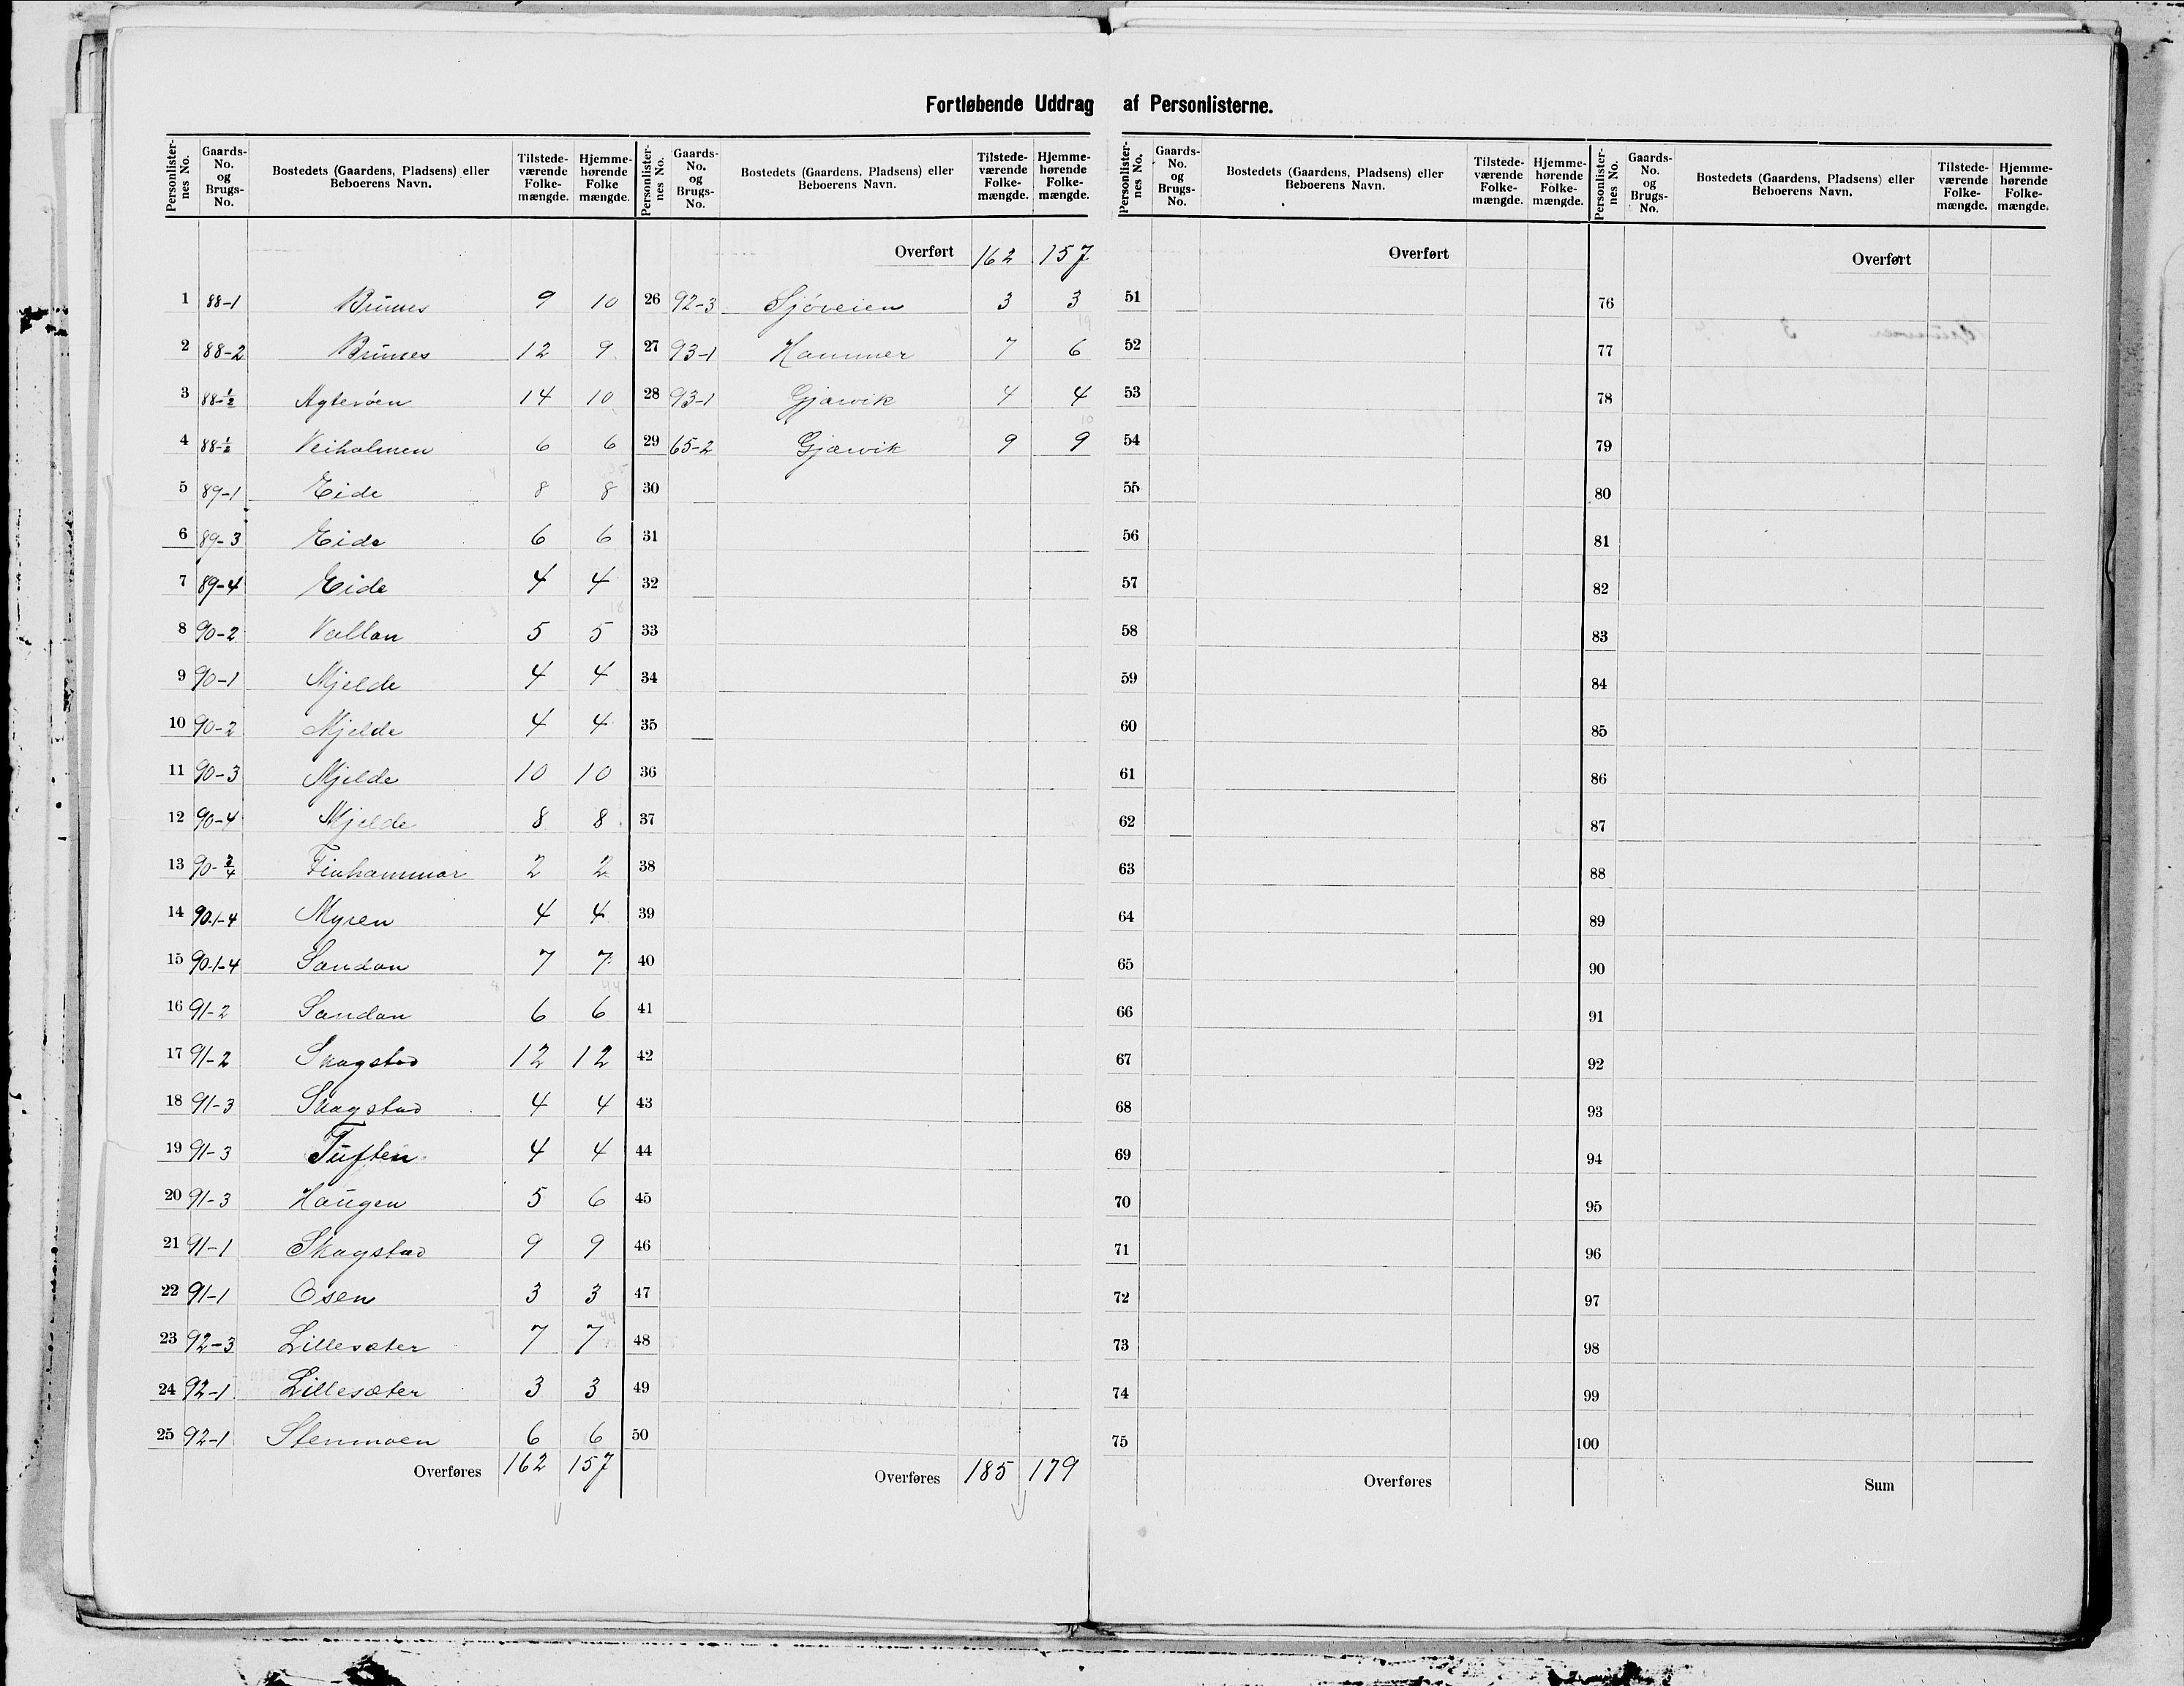 Fortløbende Uddrag af Personlisterne.
Personlister-nes No. Gaards-No. og Brugs-No. Bostedets (Gaardens, Pladsens) eller Beboerens Navn. Tilstede-værende Folke-mængde. Hjemme-hørende Folke mængde.
1 88-1 Brunes 9 10
2 88-2 Brunes 12 9
3 88-1/2 Agterøen 14 10
4 88-1/2 Veiholmen 6 6
5 89-1 Eide 8 8
6 89-3 Eide 6 6
7 89-4 Eide 4 4
8 90-2 Vollan 5 5
9 90-1 Mjelde 4 4
10 90-2 Mjelde 4 4
11 90-3 Mjelde 10 10
12 90-4 Mjelde 8 8
13 90-3/4 Finhammar 2 2
14 90.1-4 Myren 4 4
15 90.1-4 Sandan 7 7
16 91-2 Sandan 6 6
17 91-2 Skogstad 12 12
18 91-3 Skogstad 4 4
19 91-3 Tuften 4 4
20 91-3 Haugen 5 6
21 91-1 Skogstad 9 9
22 91-1 Osen 3 3
23 92-3 Lillesæter 7 7
24 92-1 Lillesæter 3 3
25 92-1 Stenmoen 6 6
Overføres 162 157
Personlister-nes No. Gaards-No. og Brugs-No. Bostedets (Gaardens, Pladsens) eller Beboerens Navn. Tilstede-værende Folke-mængde. Hjemme-hørende Folke-mængde.
Overført 162 157
26 92-3 Sjöveien 3 3
27 93-1 Hammer 7 6
28 93-1 Gjærvik 4 4
29 65-2 Gjærvik 9 9
30
31
32
33
34
35
36
37
38
39
40
41
42
43
44
45
46
47
48
49
50
Overføres 185 179
Personlister-nes No. Gaards-No. og Brugs-No. Bostedets (Gaardens, Pladsens) eller Beboerens Navn. Tilstede-værende Folke-mængde. Hjemme-hørende Folke-mængde.
Overført
51
52
53
54
55
56
57
58
59
60
61
62
63
64
65
66
67
68
69
70
71
72
73
74
75
Overføres
Personlister-nes No. Gaards-No. og Brugs-No. Bostedets (Gaardens, Pladsens) eller Beboerens Navn. Tilstede-værende Folke-mængde. Hjemme-hørende Folke-mængde.
Overført
76
77
78
79
80
81
82
83
84
85
86
87
88
89
90
91
92
93
94
95
96
97
98
99
100
Sum